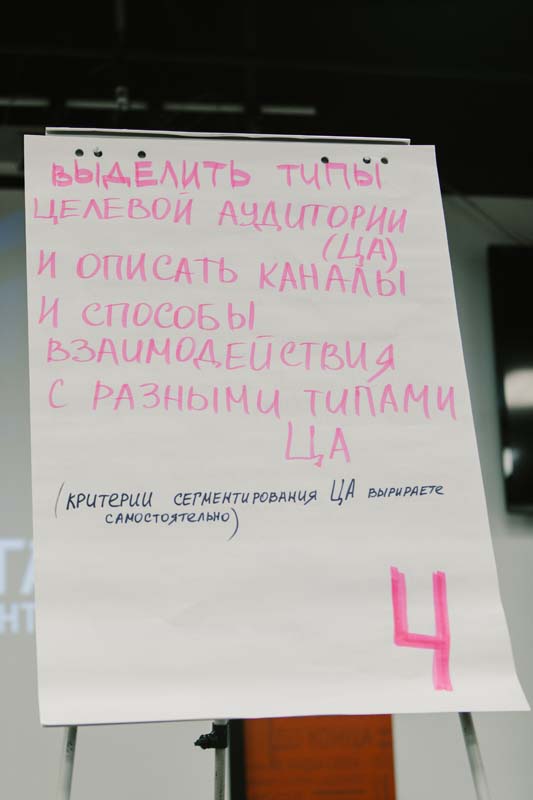 ВЫДЕЛИТЬ ТИПЫ
ЦЕЛЕВОЙ АУДИТОРИИ
(ЦА)
И ОПИСАТЬ КАНАЛЫ
И СПОСОБЫ
ВЗАИМОДЕЙСТВИЯ
С РАЗНЫМИ ТИПАМИ
ЦА
(КРИТЕРИИ СЕГМЕНТИРОВАНИЯ ЦА ВЫРИРАЕТЕ
САМОСТОЯТЕЛЬНО)
4